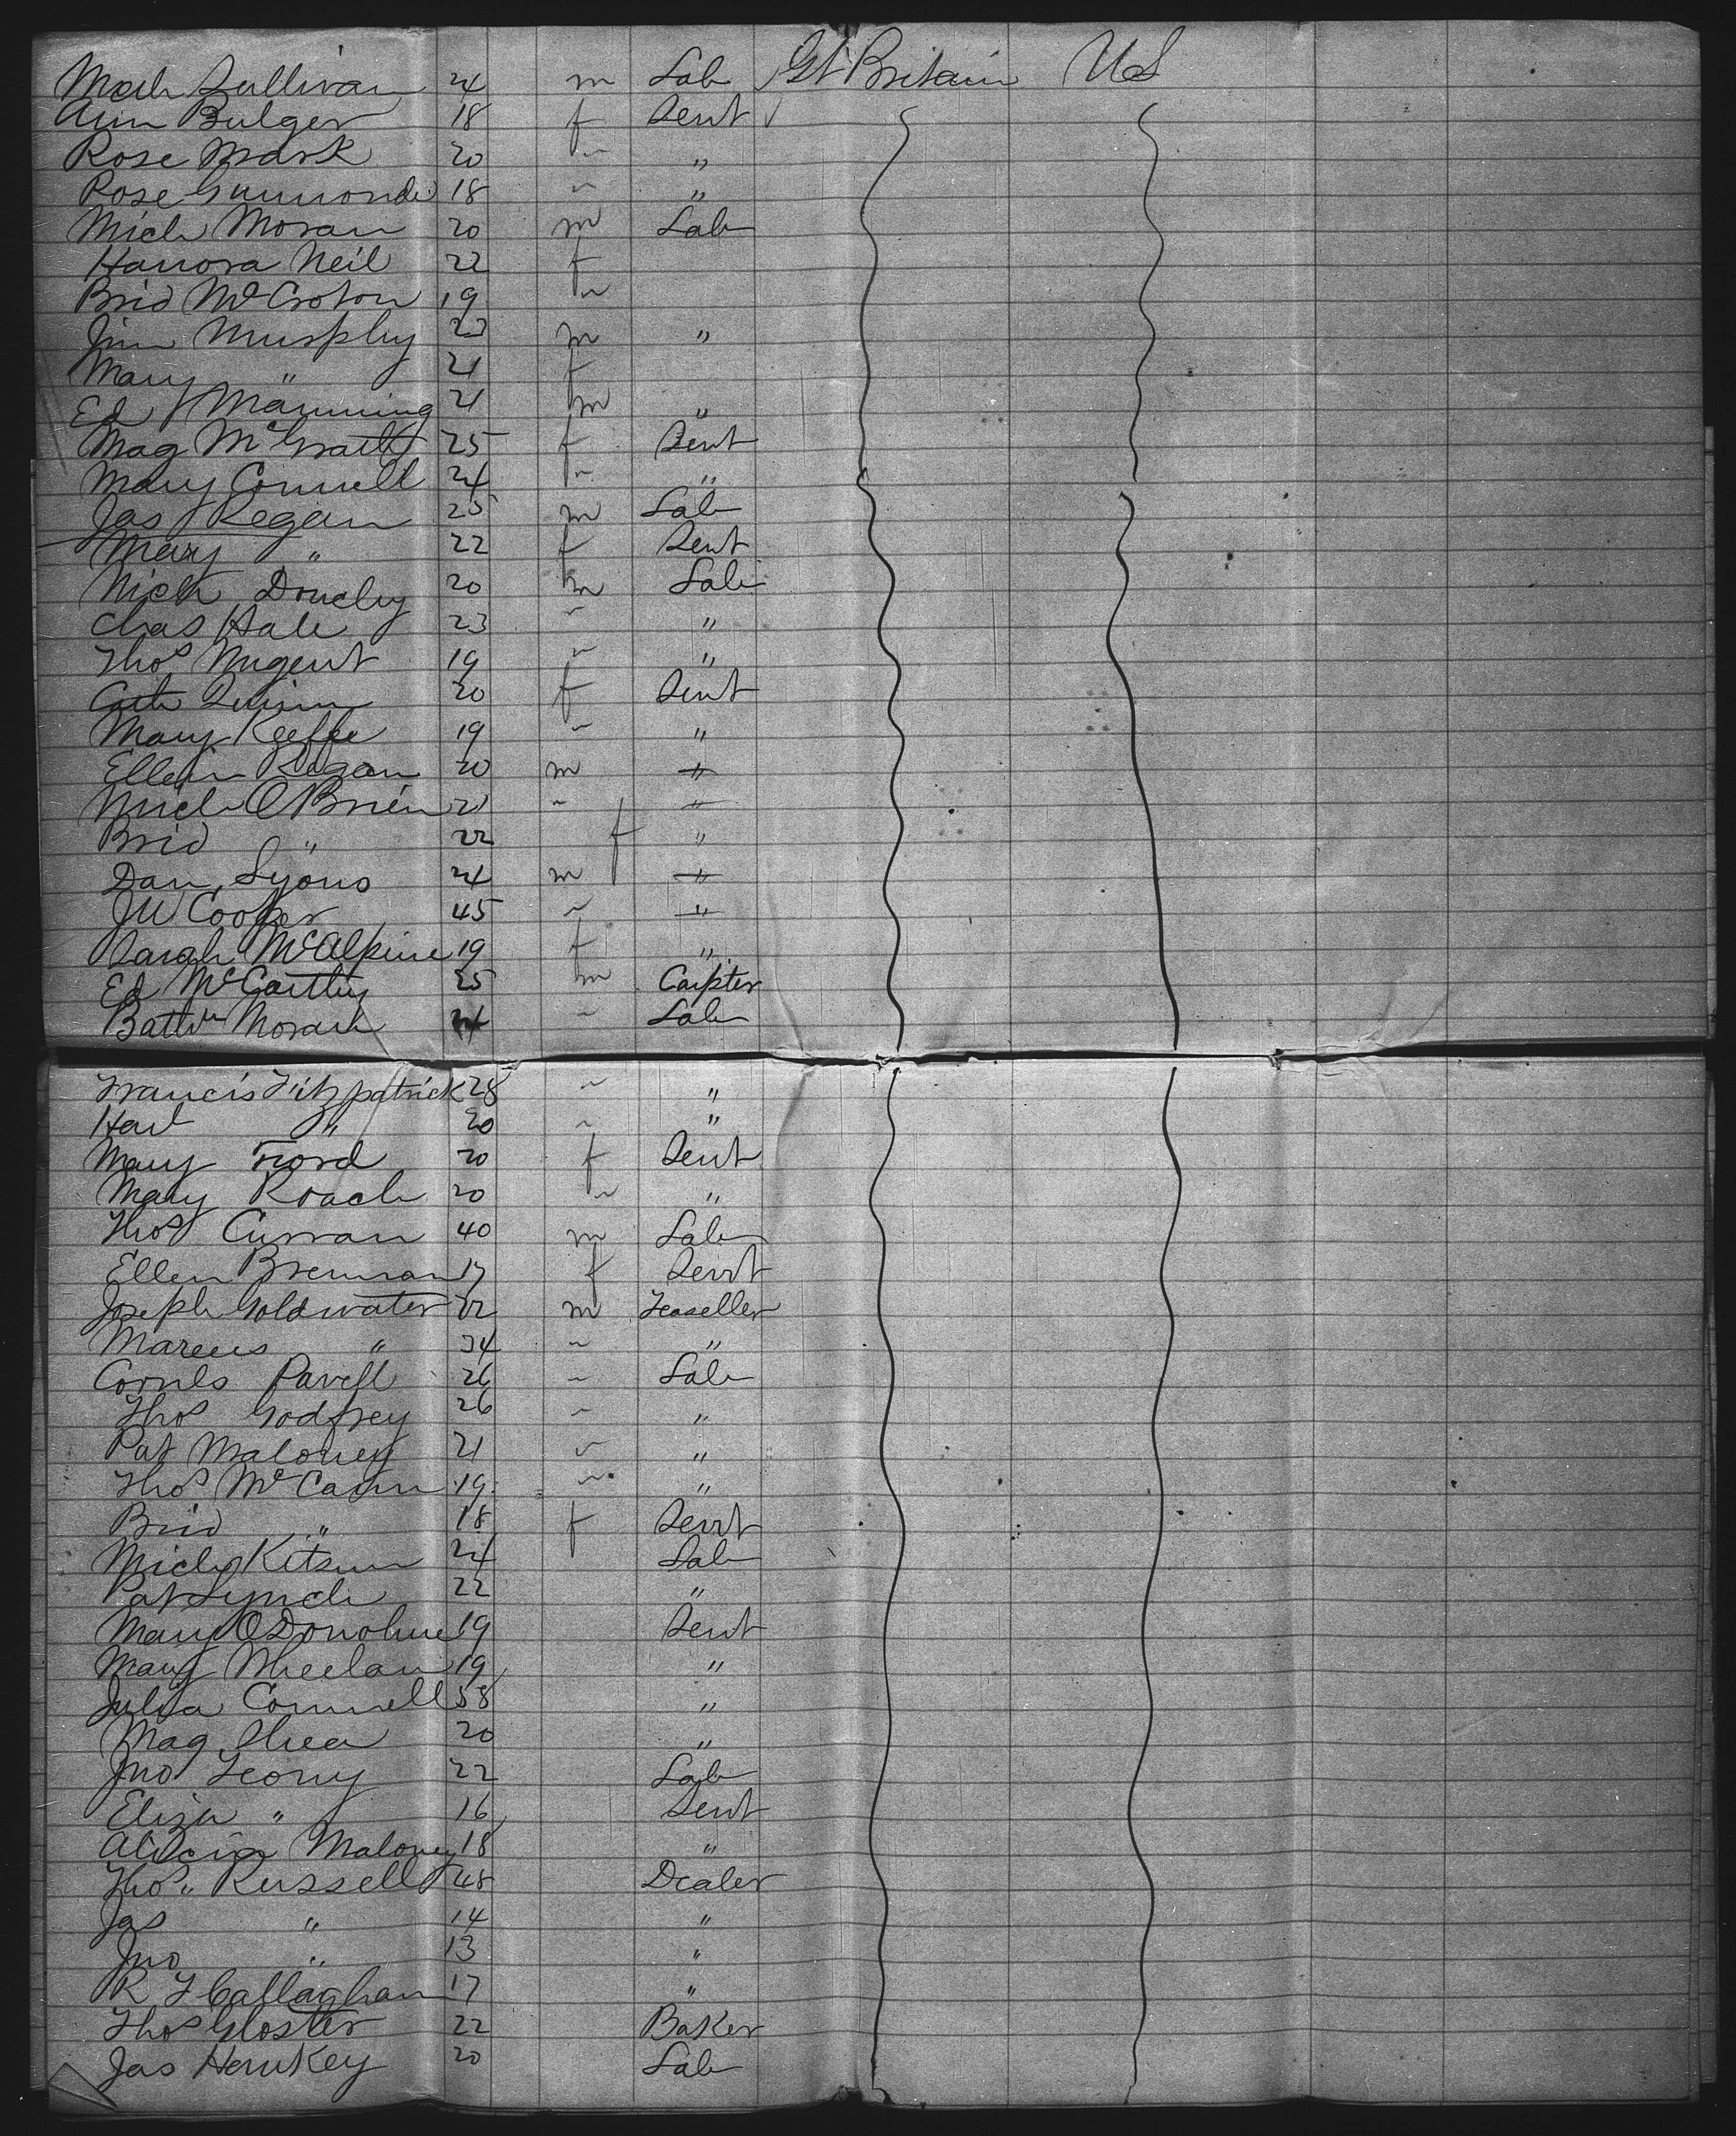 Mich Sullivan 24 m Lab Gt Britain US
Ann Bulger 18 f Servt
Rose Mark 20 " "
Rose 18 " "
Mich Moran 20 m Lab
Hanora Neil 22 f
Brid McCroton 19 "
Jim Murphy 23 m "
Mary " 21 f
Ed Manning 21 m "
Mag McGrath 25 f Servt
Mary Connell 24 " "
Jas Regan 25 m Lab
Mary " 22 f Servt
Mich 20 m Lab
Chas Hale 23 " "
Thos Nugent 19 " "
Cath 20 f Servt
Mary Keeffe 19 " "
Ellen Regan 20 m "
Mich O'Brien 21 " "
Brid " 22 f "
Dan Lyons 24 m "
JW Cooper 45 " "
Sarah McAlpine 19 f "
Ed McCarthy 25 m Carpter
Battw Moran 24 " Lab
Francis Fitzpatrick 28 " "
" 20 " "
Mary Ford 20 f Servt
Mary Roach 20 " "
Thos Curran 40 m Lab
Ellen Brennan 17 f Servt
Joseph Goldwater 22 m
Marcus " 34 " "
Cornls 26 " Lab
Thos Godfrey 26 " "
Pat Maloney 21 " "
Thos McCann 19 " "
Brid " 18 f Servt
Mich 24 Lab
Pat Lynch 22 "
Mary O'Donohue 19 Servt
Mary Wheelan 19 "
Julia Connell 58 "
Mag Shea 20 "
Jno 22 Lab
Eliza " 16 Servt
Alicia Maloney 18 "
Thos Russell 48 Dealer
Jas " 14 "
Jno " 13 "
R J Callaghan 17 "
Thos Gloster 22 Baker
Jas 20 Lab